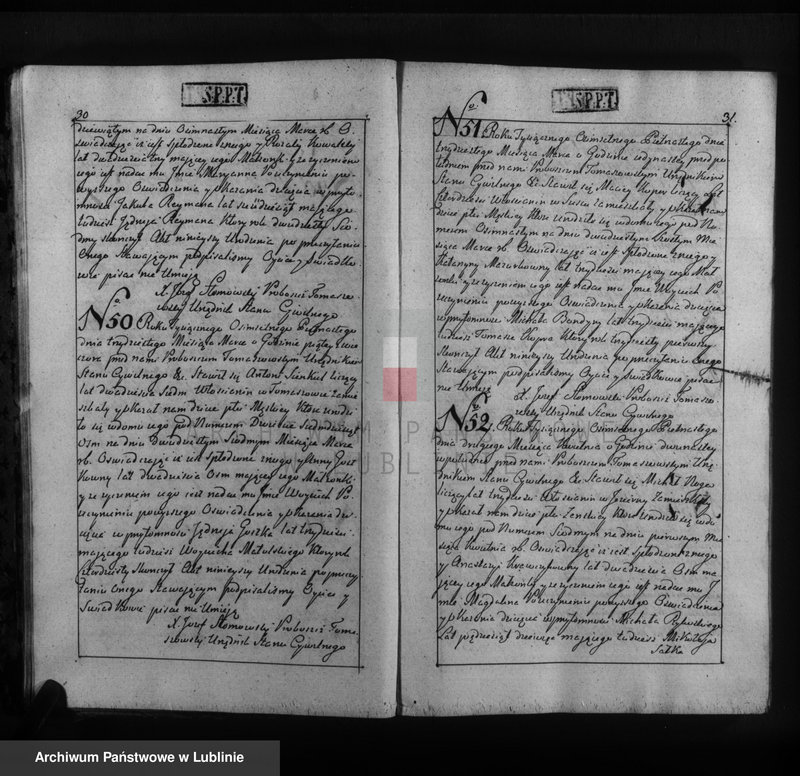 S.P.P.T.
30
dziewiątym na dniu Osimnastym Miesiąca Marca rb. O
świadczaiąc iż iest spłodzone z niego y Rozaly Kowalski
lat dwadzieścia trzy maiącey iego Małżonki y że życzeniem
iego iest nadać mu Jmie Maryanna Po uczynieniu po
wyższego Oświadczenia y okazania dziecięcia w przyto
mności Jakuba Reymana lat sześćdziesiąt maiącego
tudzież Jędrzeja Reymana który rok dwudziesty Sió
dmy skończył Akt ninieyszy Urodzenia po przeczytaniu
Onego Stawaiącym podpisaliśmy Oyciec y Świadko
wie pisać nie Umieią
X. Jozef Słomowski Proboszcz Tomaszo
wski Urzędnik Stanu Cywilnego
No 50 Roku Tysiącznego Osimsetnego Piętnastego
dnia trzydziestego Miesiąca Marca o Godzinie piątey wie
czorem przed nami Proboszczem Tomaszowskim Urzędnikiem
Stanu Cywilnego &. Stawił się Antoni liczący
lat dwadzieścia Siedm Włościanin w Tomaszowie Zamie
szkały y okazał nam dziecie płci Męskiey które urodzi
ło się w domu iego pod Numerem Dwieście Siedmdziesiąt
Ośm na dniu Dwudziestym Siódmym Miesiąca Marca
rb. Oświadczaiąc iż iest spłodzone z niego y Anny Josz
kowny lat dwadzieścia Ośm maiącey iego Małżonki
y że życzeniem iego iest nadać mu Jmie Woyciech Po
uczynieniu powyższego Oświadczenia y okazania dzie
cięcia w przytomności Jędrzeja Joszka lat trzydzieści
maiącego tudzież Woyciecha Matulskiego który rok
Czterdziesty Skończył Akt ninieyszy Urodzenia po przeczy
taniu Onego Stawaiącym podpisaliśmy Oyciec y
Świadkowie pisać nie Umieią
X. Jozef Słomowski Proboszcz Toma
szowski Urzędnik Stanu Cywilnego
S.P.P.T.
31
No 51 Roku Tysiącznego Osimsetnego Piętnastego dnia
trzydziestego Miesiąca Marca o Godzinie iedynastey przed po
łudniem przed nami Proboszczem Tomaszowskim Urzędnikiem
Stanu Cywilnego &. Stawił się Maciey Kupiec liczący lat
Włościanin w Zamieszkały y okazał nam
dziecie płci Męskiey które Urodziło się w domu iego pod Nu
merem Osimnastym na dniu dwudziestym Szóstym Mie
siąca Marca rb. Oświadczaiąc iż iest Spłodzone z niego y
Katarzyny Mazurkowny lat trzydzieści maiącey iego Mał
żonki y że życzeniem iego iest nadać mu Jmie Woyciech Po
uczynieniu powyższego Oświadczenia y okazania dziecięcia
w przytomności Michała Bondyry lat trzydzieści maiącego
tudzież Tomasza Kupca który rok trzydziesty pierwszy
Skończył Akt ninieyszy Urodzenia po przeczytaniu Onego
Stawaiącym podpisaliśmy Oyciec y Świadkowie pisać
nie Umieią
X. Jozef Słomowski Proboszcz Tomaszo
wski Urzędnik Stanu Cywilnego
No 52 Roku Tysiącznego Osimsetnego Piętnastego
dnia drugiego Miesiąca Kwietnia o Godzinie dwunastey
w południe przed nami Proboszczem Tomaszowskim Urzę
dnikiem Stanu Cywilnego &. Stawił się Michał
liczący lat trzydzieści Włościanin w Zamieszkały
y okazał nam dziecie płci Zenskiey które urodziło się w do
mu iego pod Numerem Siódmym na dniu pierwszym Mie
siąca Kwietnia rb. Oświadczaiąc iż iest Spłodzone z niego
y Anastazyi lat dwadzieścia Ośm ma
iącey iego Małżonki y że życzeniem iego iest nadać mu J
mie Magdalena Po uczynieniu powyższego Oświadczenia
y okazania dziecięcia w przytomności Michała
lat pięćdziesiąt maiącego tudzież Mikołaja
Satka
Archiwum Państwowe w Lublinie